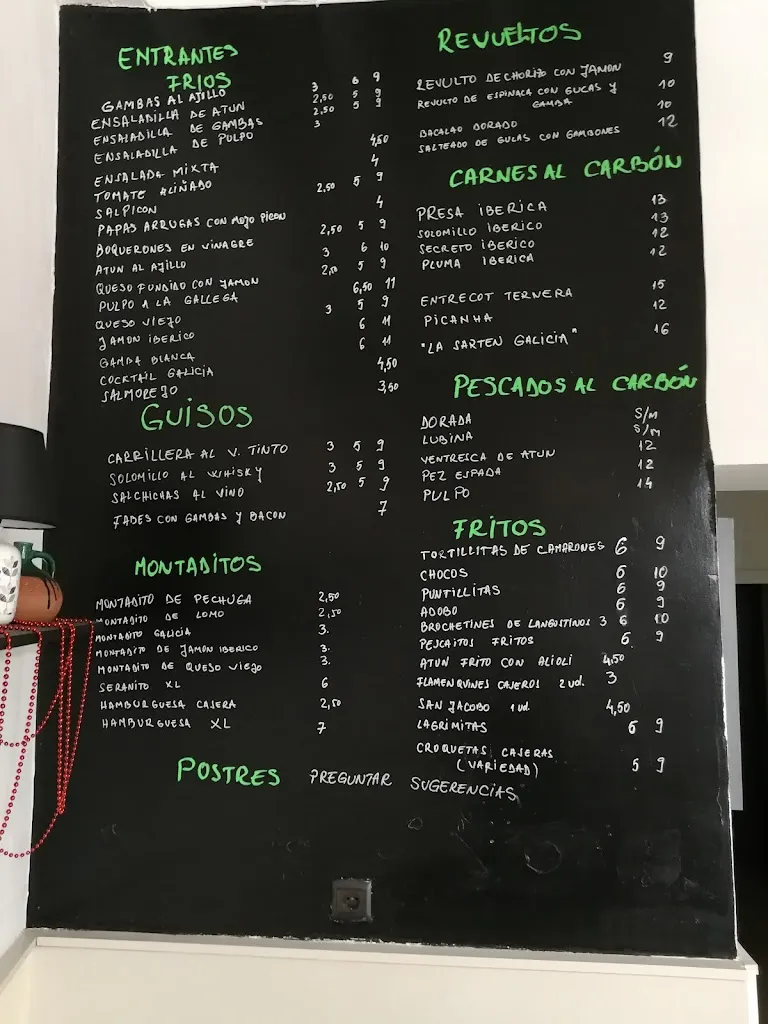 ENTRANTES
FRIOS
GAMBAS AL AJILLO 3 6 9
ENSALADILLA DE ATUN 2,50 5 9
ENSALADILLA DE GAMBAS 2,50 5 9
ENSALADILLA DE PULPO 3
ENSALADA MIXTA 4,50
TOMATE ALIÑADO 4
SALPICON 2,50 5 9
PAPAS ARRUGAS CON MOJO PICON 4
BOQUERONES EN VINAGRE 2,50 5 9
ATUN AL AJILLO 3 6 10
QUESO FUNDIDO CON JAMON 2,50 5 9
PULPO A LA GALLEGA 6,50 11
QUESO VIEJO 3 5 9
JAMON IBERICO 6 11
GAMBA BLANCA 6 11
COCKTAIL GALICIA 4,50
SALMOREJO 3,50
GUISOS
CARRILLERA AL V. TINTO 3 5 9
SOLOMILLO AL WHISKY 3 5 9
SALCHICHAS AL VINO 2,50 5 9
FADES CON GAMBAS Y BACON 7
MONTADITOS
MONTADITO DE PECHUGA 2,50
MONTADITO DE LOMO 2,50
MONTADITO GALICIA 3.
MONTADITO DE JAMON IBERICO 3.
MONTADITO DE QUESO VIEJO 3.
SERANITO XL 6
HAMBURGUESA CASERA 2,50
HAMBURGUESA XL 7
REVUELTOS
REVULTO DE CHORIZO CON JAMON 9
REVULTO DE ESPINACA CON GUCAS Y 10
GAMBA
BACALAO DORADO 10
SALTEADO DE GULAS CON GAMBONES 12
CARNES AL CARBÓN
PRESA IBERICA 13
SOLOMILLO IBERICO 13
SECRETO IBERICO 12
PLUMA IBERICA 12
ENTRECOT TERNERA 15
PICANHA 12
"LA SARTEN GALICIA" 16
PESCADOS AL CARBÓN
DORADA S/M
LUBINA S/M
VENTRESCA DE ATUN 12
PEZ ESPADA 12
PULPO 14
FRITOS
TORTILLITAS DE CAMARONES 6 9
CHOCOS 6 10
PUNTILLITAS 6 9
ADOBO 6 9
BROCHETINES DE LANGOSTINOS 3 6 10
PESCAITOS FRITOS 6 9
ATUN FRITO CON ALIOLI 4,50
FLAMENQUINES CASEROS 2 ud. 3
SAN JACOBO 1 ud 4,50
LAGRIMITAS 6 9
CROQUETAS CASERAS
(VARIEDAD) 5 9
POSTRES PREGUNTAR SUGERENCIAS